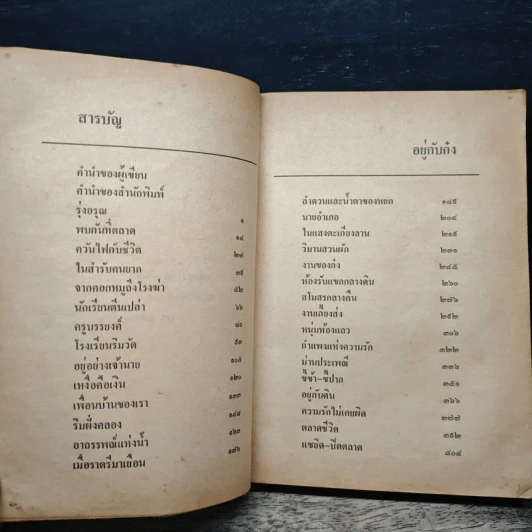 สารบัญ
คำนำของผู้เขียน
คำนำของสำนักพิมพ์
รุ่งอรุณ ๑
พบกันที่ตลาด ๑๔
ควันไฟกับชีวิต ๒๔
ในสำรับคนยาก ๓๕
จากคอกหมูถึงโรงฆ่า ๕๒
นักเรียนตีนเปล่า ๖๖
ครูบรรยงค์ ๘๐
โรงเรียนริมวัด ๙๓
อยู่อย่างเจ้านาย ๑๐๕
เหงื่อคือเงิน ๑๒๐
เพื่อนบ้านของเรา ๑๓๓
ริมฝั่งคลอง ๑๔๘
อาถรรพณ์แห่งน้ำ ๑๖๓
เมื่อราตรีมาเยือน ๑๗๖
อยู่กับก๋ง
ลำดวนและน้ำตาของหยก ๑๘๙
นายอำเภอ ๒๐๔
ในแสงตะเกียงลาน ๒๑๙
วิมานสวนผัก ๒๓๑
งานของก๋ง ๒๔๕
ห้องรับแขกกลางดิน ๒๖๐
สโมสรกลางคืน ๒๗๖
งานเลี้ยงส่ง ๒๙๒
หนุ่มห้องแลว ๓๐๖
กำแพงแห่งความรัก ๓๒๒
ม่านประเพณี ๓๓๖
ขี้ข้า-ขี้ปาก ๓๕๑
อยู่กับดิน ๓๖๖
ความรักไม่เคยผิด ๓๗๗
ตลาดชีวิต ๓๙๒
แซยิด-ปิดตลาด ๔๐๔